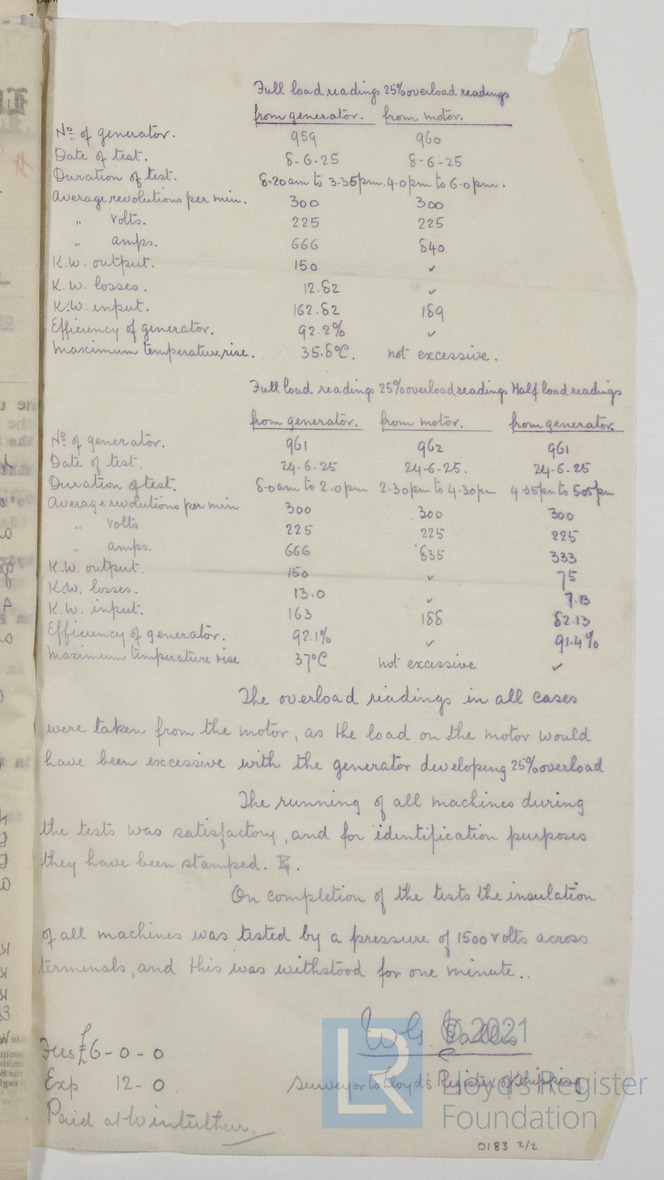 Full load readings 25% overload readings
from generator. from motor.
No of generator. 959 960
Date of test. 8-6-25 8-6-25
Duration of test. 8-20am to 3-35pm. 4-0pm to 6-0pm.
Average revolutions per min. 300 300
" volts. 225 225
" amps. 666 840
K.W. output. 150 ✓
K.W. losses. 12.82 ✓
K.W. input. 162.82 189
Efficiency of generator. 92.2% ✓
Maximum temperature rise. 35.8°C. not excessive.
Full load readings 25% overload readings Half load readings
from generator. from motor. from generator.
No of generator. 961 962 961
Date of test. 24-6-25 24-6-25. 24-6-25
Duration of test. 8-0am to 2-0pm 2-30pm to 4-30pm 4-35pm to 5-05pm
Average revolutions per min 300 300 300
" volts. 225 225 225
" amps. 666 835 333
K.W. output. 150 ✓ 75
K.W. losses. 13.0 ✓ 7.13
K.W. input. 163 188 82.13
Efficiency of generator. 92.1% ✓ 91.4%
Maximum temperature rise 37°C not excessive ✓
The overload readings in all cases
were taken from the motor, as the load on the motor would
have been excessive with the generator developing 25% overload
The running of all machines during
the tests was satisfactory, and for identification purposes
they have been stamped.
On completion of the tests the insulation
of all machines was tested by a pressure of 1500 volts across
terminals, and this was withstood for one minute..
W.G.
Fees £6-0-0
Exp 12-0
Surveyor to Lloyd's Register of Shipping
Paid at Winterthur.
© 2021
LR
Lloyd's Register
Foundation
0183 2/2